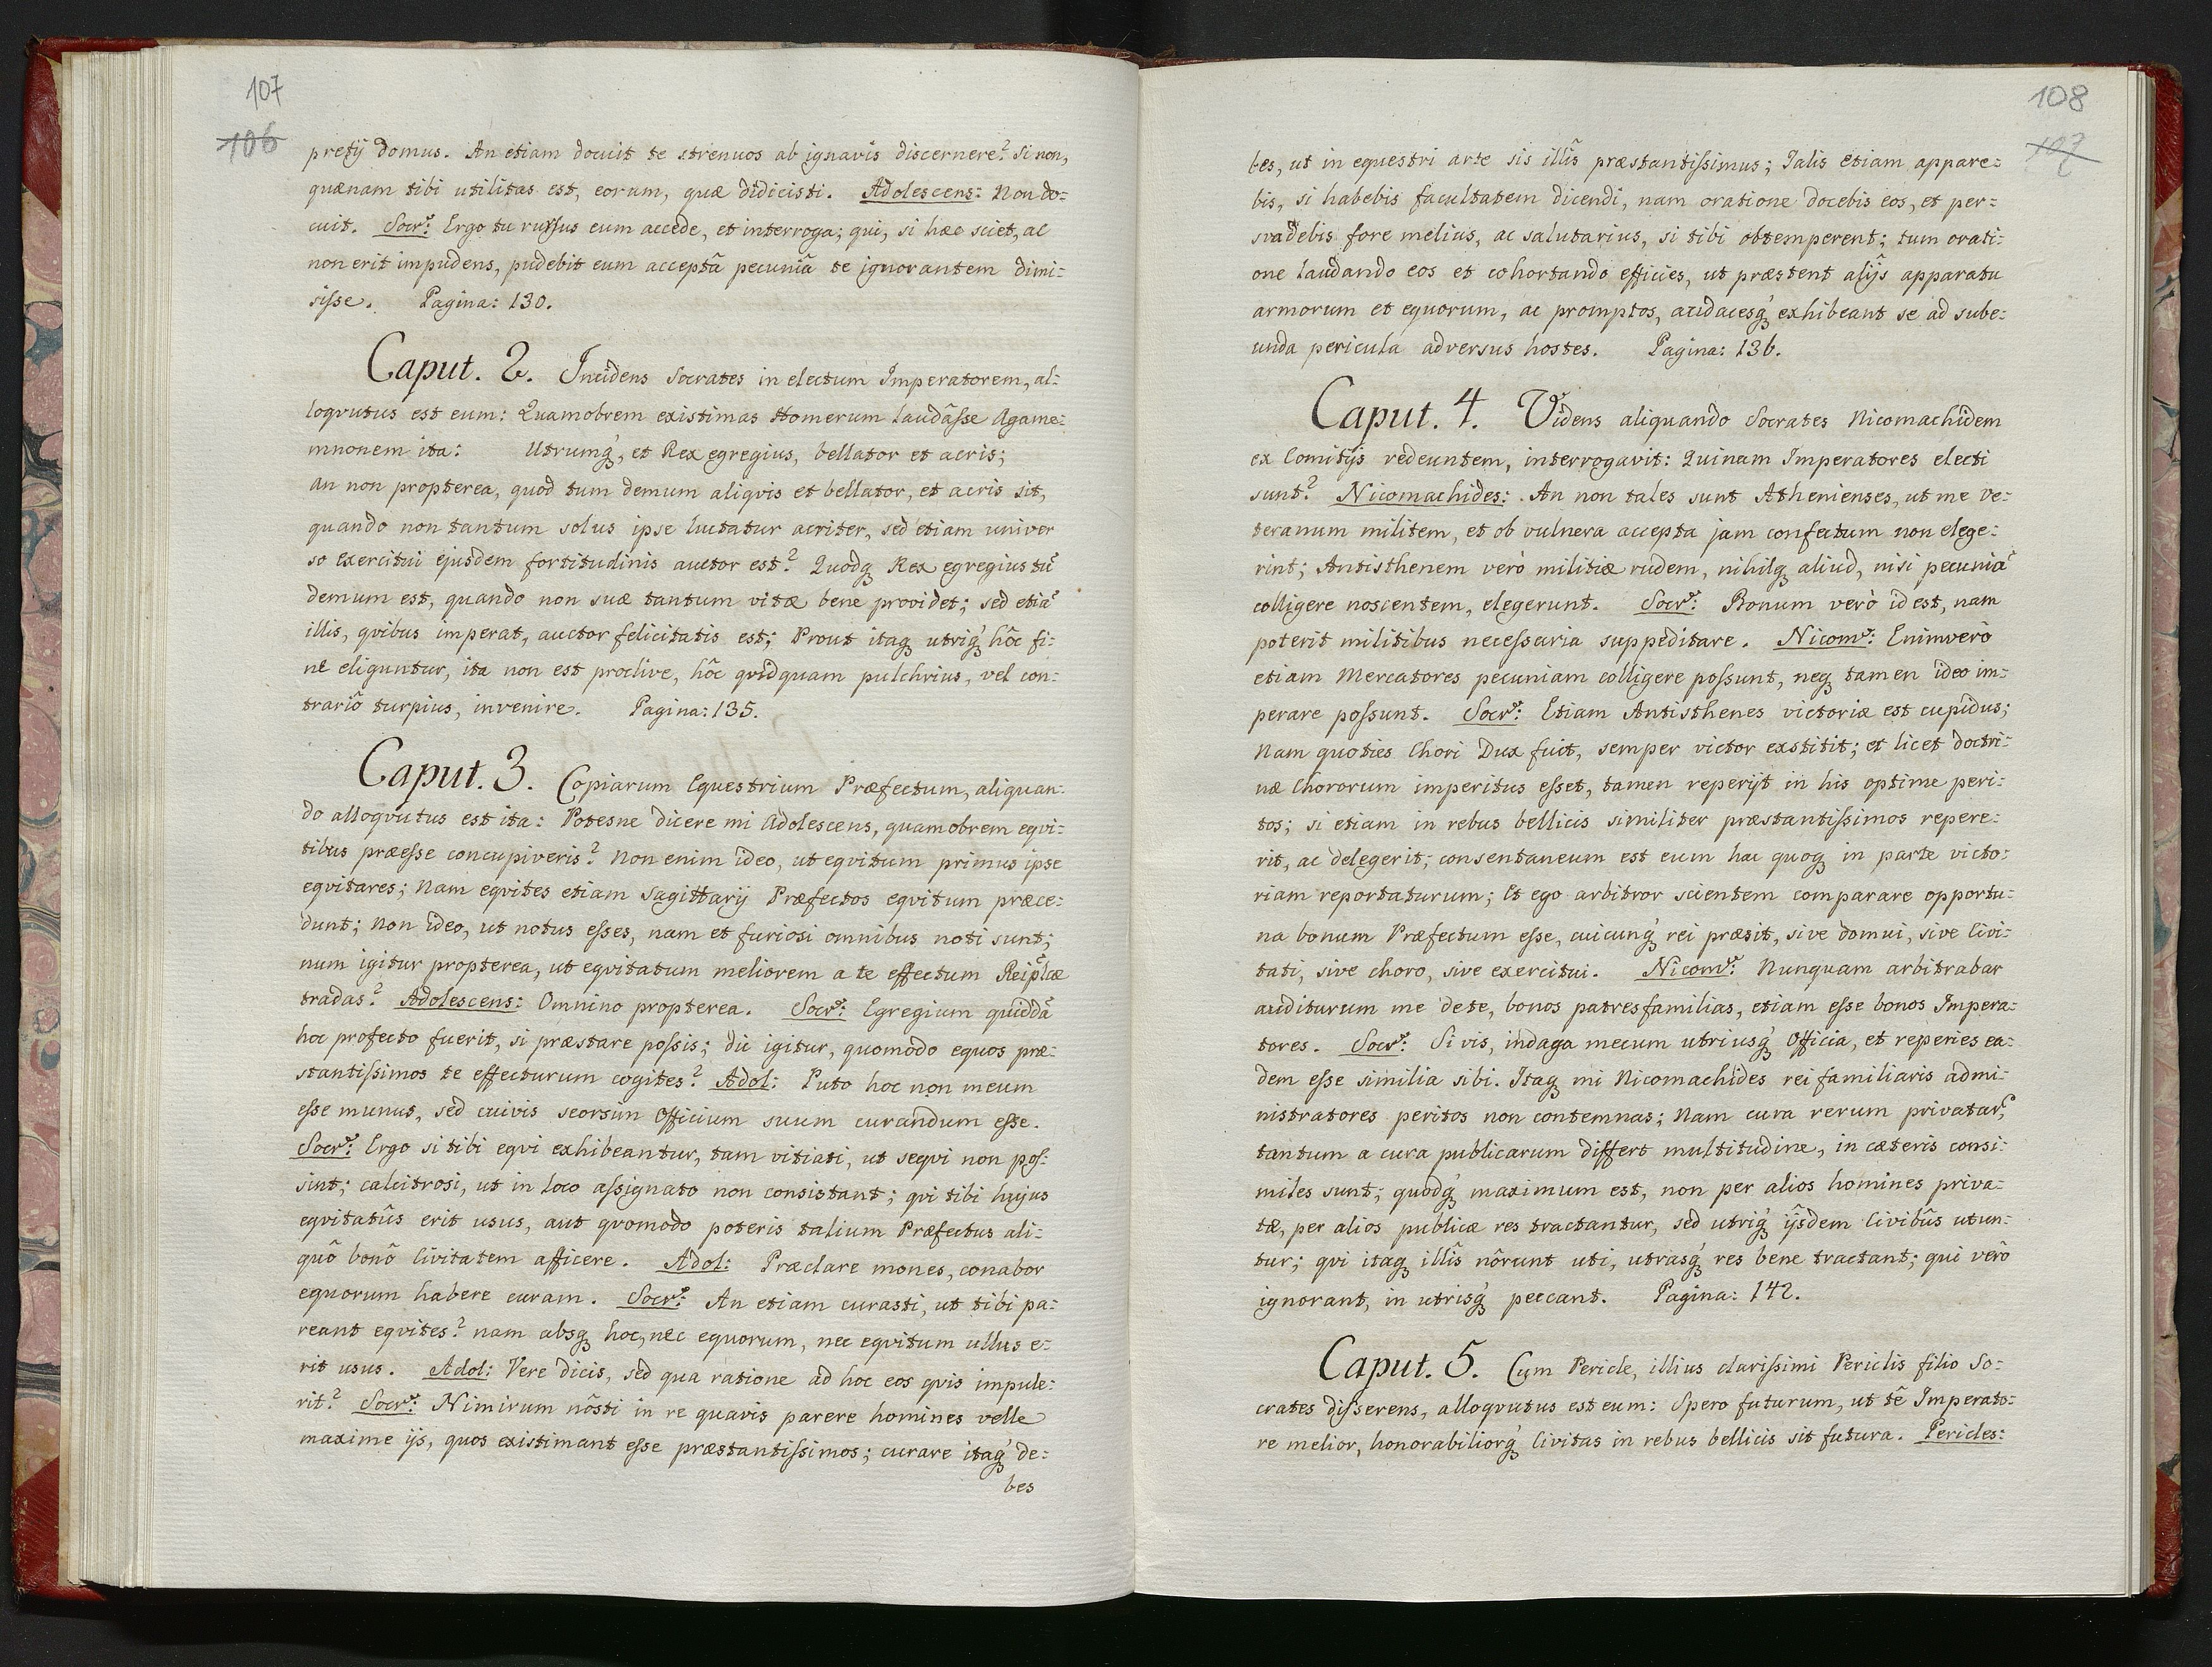 107
106
pretij domus. An etiam docuit te strenuos ab ignavis discernere? Si non,
quænam tibi utilitas est, eorum, quæ didicisti. Adolescens: Non do=
cuit. Socr: Ergo tu rursus eum accede, et interroga; qui, si hæc sciet, ac
non erit impudens, pudebit eum acceptâ pecuniâ te ignorantem dimi=
sisse. Pagina: 130.
Caput. 2. Incidens Socrates in electum Imperatorem, al=
loqvutus est eum: Quamobrem existimas Homerum laudâsse Agame=
mnonem ita: Utrumq́, et Rex egregius, bellator et acris;
an non propterea, quod tum demum aliqvis et bellator, et acris sit,
quando non tantum solus ipse luctatur acriter, sed etiam univer
so exercitui ejusdem fortitudinis auctor est? Quodq Rex egregius tũ
demum est, quando non suæ tantum vitæ bene providet; sed etiã
illis, qvibus imperat, auctor felicitatis est; Prout itaq utriq́ hôc fi=
ne eliguntur, ita non est proclive, hôc qvidquam pulchrius, vel con=
trariô turpius, invenire. Pagina: 135.
Caput. 3. Copiarum Equestrium Præfectum, aliquan=
do alloqvutus est ita: Potesne dicere mi Adolescens, quamobrem eqvi=
tibus præesse concupiveris? Non enim ideo, ut eqvitum primus ipse
eqvitares; Nam eqvites etiam Sagittarij Præfectos eqvitum præce=
dunt; Non ideo, ut notus esses, nam et furiosi omnibus noti sunt;
num igitur propterea, ut eqvitatum meliorem a te effectum Reipl̃cæ
tradas? Adolescens: Omnino propterea. Socr: Egregium quiddã
hoc profecto fuerit, si præstare possis; dic igitur, quomodo equos præ=
stantissimos te effecturum cogites? Adol: Puto hoc non meum
esse munus, sed cuivis seorsim Officium suum curandum esse.
Socr: Ergo si tibi eqvi exhibeantur, tam vitiati, ut seqvi non pos=
sint; calcitrosi, ut in loco assignato non consistant; qvi tibi hujus
eqvitatûs erit usus, aut qvomodo poteris talium Præfectus ali=
quô bonô Civitatem afficere. Adol: Præclare mones, conabor
equorum habere curam. Socr: An etiam curasti, ut tibi pa=
reant eqvites? nam absq hoc, nec equorum, nec eqvitum ullus e=
rit usus. Adol: Vere dicis, sed qua ratione ad hoc eos qvis impule=
rit? Socr: Nimirum nôsti in re quavis parere homines velle
maxime ijs, quos existimant esse præstantissimos; curare itaq́ de=
bes
108
107
bes, ut in equestri arte sis illîs præstantissimus; Talis etiam appare=
bis, si habebis facultatem dicendi, nam oratione docebis eos, et per=
svadebis fore melius, ac salutarius, si tibi obtemperent; tum orati=
one laudando eos et cohortando efficies, ut præstent alijs apparatu
armorum et equorum, ac promptos, audacesq́ exhibeant se ad sube=
unda pericula adversus hostes. Pagina: 136.
Caput. 4. Videns aliquando Socrates Nicomachidem
ex Comitijs redeuntem, interrogavit: Quinam Imperatores electi
sunt? Nicomachides: An non tales sunt Athenienses, ut me ve=
teranum militem, et ob vulnera accepta jam confectum non elege=
rint; Antisthenem verò militiæ rudem, nihilq aliud, nisi pecuniã
colligere noscentem, elegerunt. Socr: Bonum verò id est, nam
poterit militibus necessaria suppeditare. Nicom: Enimverò
etiam Mercatores pecuniam colligere possunt, neq tamen ideo im=
perare possunt. Socr: Etiam Antisthenes victoriæ est cupidus;
Nam quoties Chori Dux fuit, semper victor exstitit; et licet doctri=
næ Chororum imperitus esset, tamen reperijt in his optime peri=
tos; si etiam in rebus bellicis similiter præstantissimos repere=
rit, ac delegerit; consentaneum est eum hac quoq in parte victo=
riam reportaturum; Et ego arbitror scientem comparare opportu=
na bonum Præfectum esse, cuicunq́ rei præsit, sive domui, sive Civi=
tati, sive choro, sive exercitui. Nicom: Nunquam arbitrabar
auditurum me de te, bonos patresfamilias, etiam esse bonos Impera=
tores. Socr: Si vis, indaga mecum utriusq́ Officia, et reperies ea=
dem esse similia sibi. Itaq mi Nicomachides rei familiaris admi=
nistratores peritos non contemnas; Nam cura rerum privatar,
tantum a cura publicarum differt multitudine, in cæteris consi=
miles sunt; quodq́ maximum est, non per alios homines priva=
tæ, per alios publicæ res tractantur, sed utriq́ ijsdem Civibûs utun=
tur; qvi itaq illîs nôrunt uti, utrasq́ res bene tractant; qui verò
ignorant, in utrisq́ peccant. Pagina: 142.
Caput. 5. Cum Pericle, illius clarissimi Periclis filio So=
crates disserens, alloqvutus est eum: Spero futurum, ut tê Imperato=
re melior, honorabiliorq́ Civitas in rebus bellicis sit futura. Pericles: